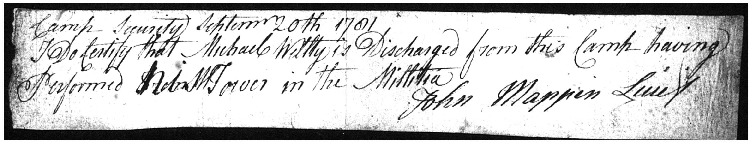 Camp Security Septemr 20th 1781
I Do Certify that Michael Willty is Discharged from this Camp having
Performed his Tower in the Militia
John Mappin Lieut